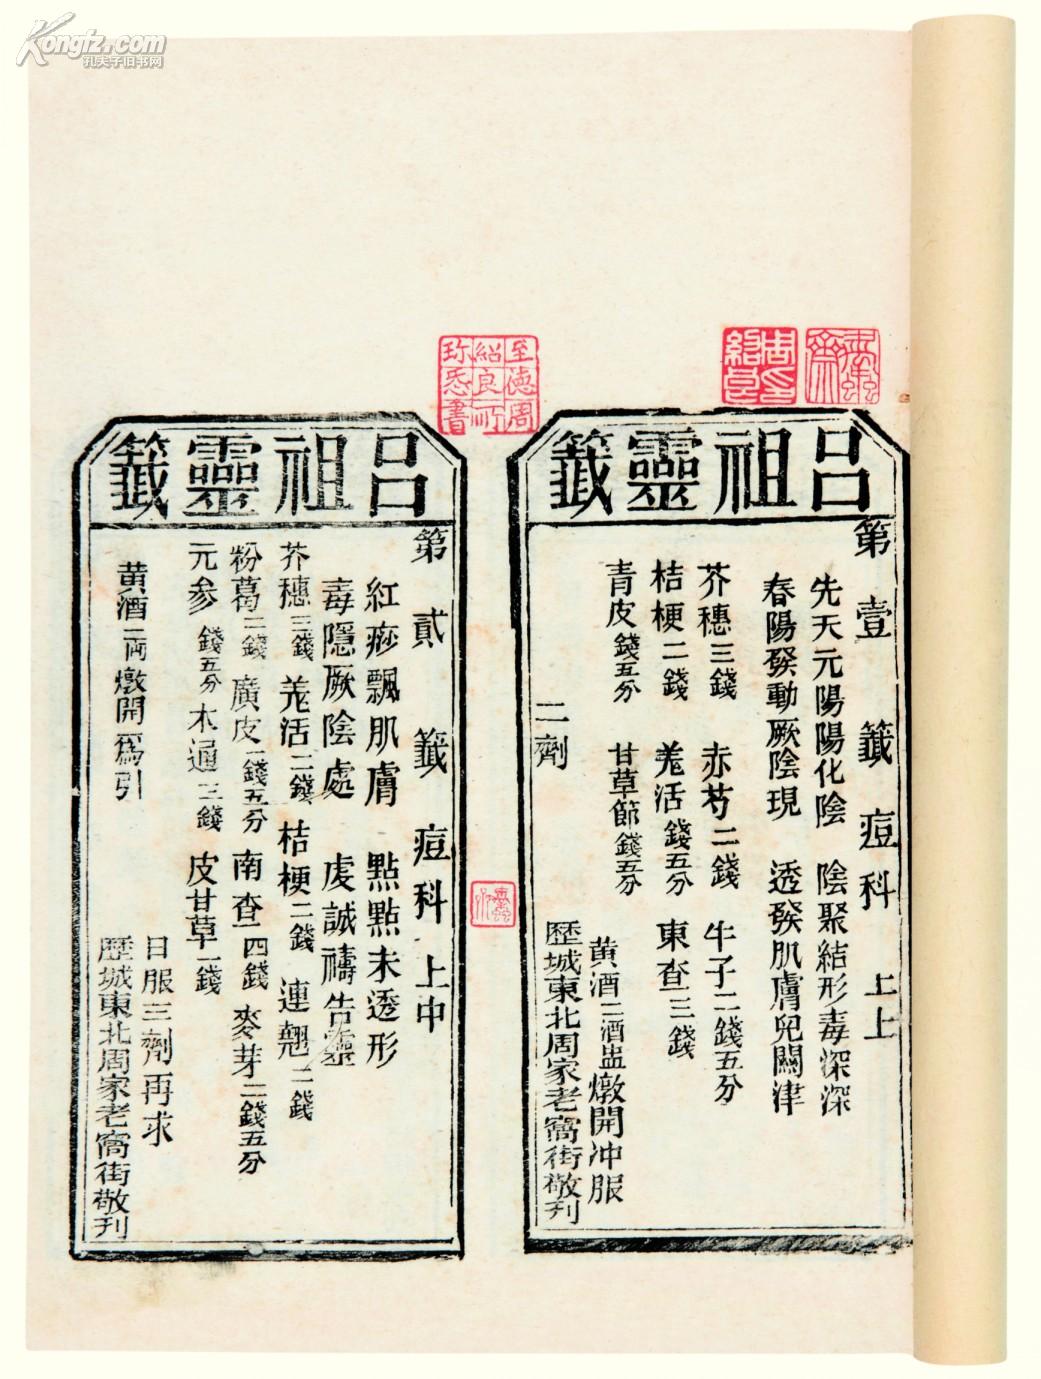 Kongfz.com
孔夫子旧书网
至德周
紹良所
珍悉書
周印
紹良
呂祖靈籤
第壹籤 痘科 上上
先天元陽陽化陰 陰聚結形毒深深
春陽發動厥陰現 透發肌膚兒關津
芥穗三錢 赤芍二錢 牛子二錢五分
桔梗二錢 羌活錢五分 東查三錢
青皮錢五分 甘草節錢五分
黃酒二酒盅燉開冲服
二劑
歷城東北周家老窩街敬刊
呂祖靈籤
第貳籤 痘科 上中
紅痧飄肌膚 點點未透形
毒隱厥陰處 虔誠禱告靈
芥穗三錢 羌活二錢 桔梗二錢 連翹二錢
粉葛二錢 廣皮一錢五分 南查四錢 麥芽二錢五分
元参錢五分 木通三錢 皮甘草一錢
日服三劑再求
黃酒二両燉開為引
歷城東北周家老窩街敬刊